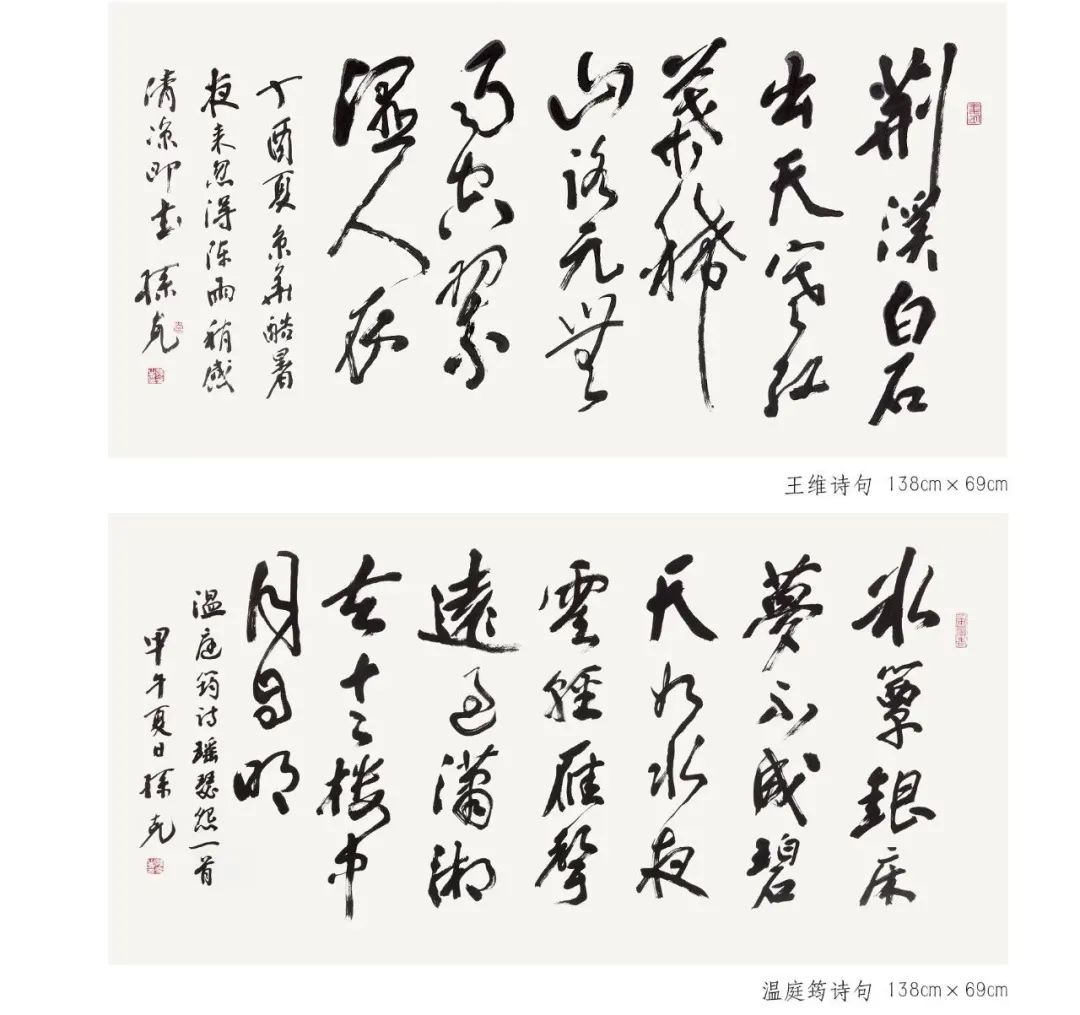 荆溪白石
出天寒红
葉稀
山路元無
雨空翠
濕人衣
丁酉夏京華酷暑
夜来忽得陣雨稍感
清凉即書 孫克
王维诗句 138cm×69cm
冰簟銀床
夢不成碧
天如水夜
雲輕雁聲
遠過瀟湘
去十二樓中
月自明
温庭筠诗瑶瑟怨一首
甲午夏日孫克
温庭筠诗句 138cm×69cm